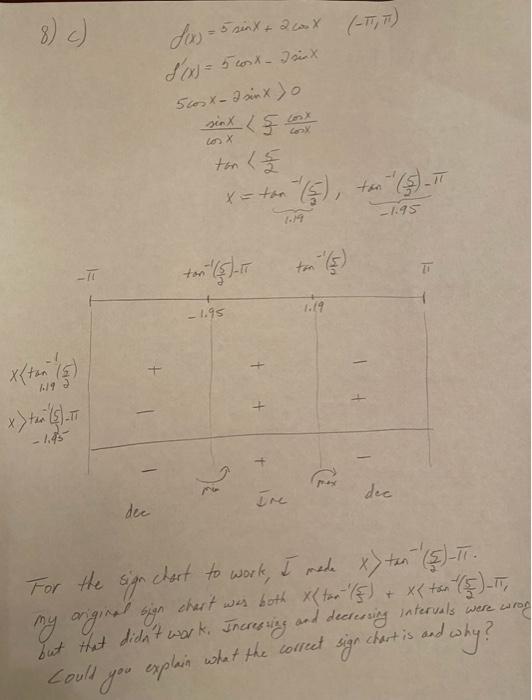 8) c)
f(x) = 5 sinx + 2 cosx (-π, π)
f'(x) = 5 cosx - 2 sinx
5cosx - 2 sinx > 0
sinx/cosx < 5/2 cosx/cosx
tan < 5/2
x = tan⁻¹(5/2), tan⁻¹(5/2) - π
1.19 -1.95
-π tan⁻¹(5/2)-π tan⁻¹(5/2) π
-1.95 1.19
x < tan⁻¹(5/2) + + -
1.19
x > tan⁻¹(5/2)-π - + +
-1.95
- + -
min max
dec Inc dec
For the sign chart to work, I made x > tan⁻¹(5/2)-π.
My original sign chart was both x < tan⁻¹(5/2) + x < tan⁻¹(5/2)-π,
but that didn't work. Increasing and decreasing intervals were wrong
Could you explain what the correct sign chart is and why?